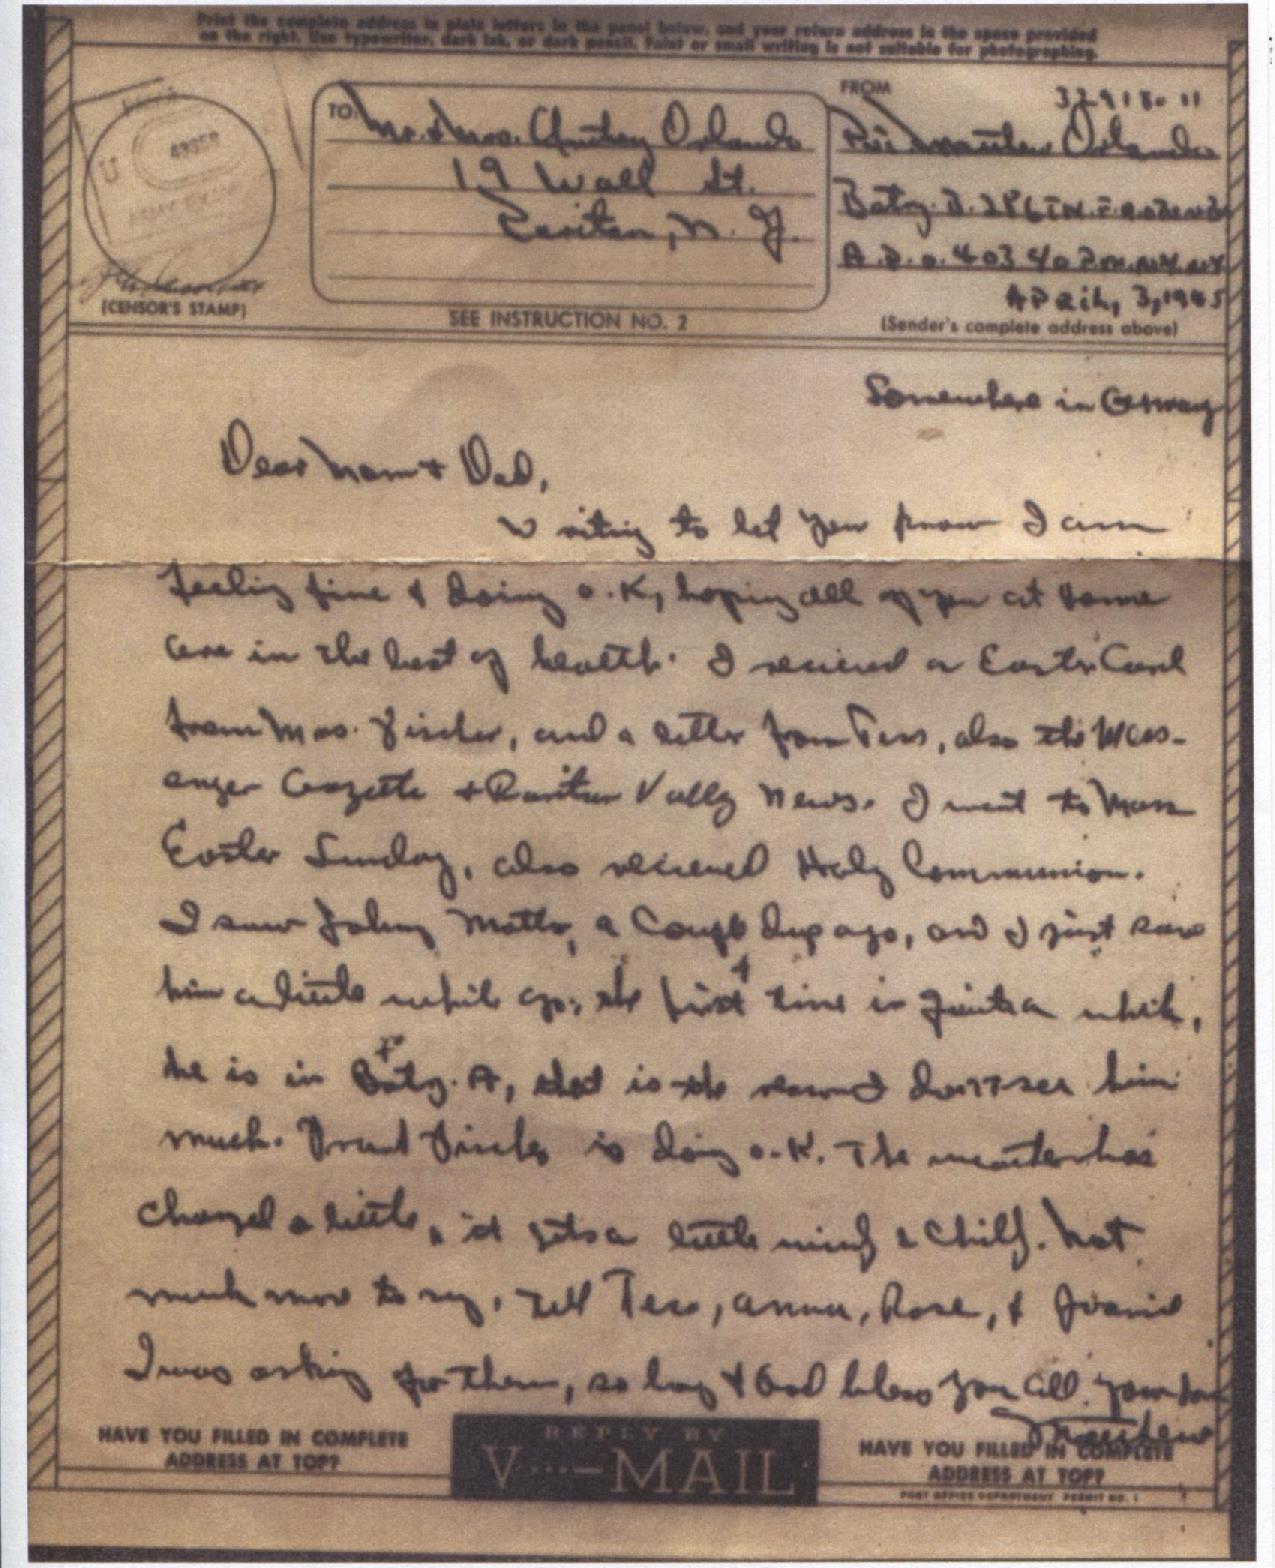 Print the complete address in plain letters in the panel below, and your return address in the space provided
on the right. Use typewriter, dark ink, or dark pencil. Faint or small writing is not suitable for photographing.
TO:
Mr. & Mrs. Orlando
19 Wall St.
Raritan, N. J.
FROM
Pvt Matthew Orlando
Batry. B.
A.P.O. 403
April, 3, 1945
(Sender's complete address above)
ARMY EXAMINER
(CENSOR'S STAMP)
SEE INSTRUCTION NO. 2
Somewhere in Germany
Dear Mom & Dad,
Writing to let you know I am
feeling fine & doing o.K, hoping all of you at home
are in the best of health. I recieved a Easter Card
from Mrs. Fischer, and a letter from Tess, also the Mess-
enger Gazette & Raritan Vally News. I went to Mass
Easter Sunday, also recieved Holy Communion.
I saw Johny Matts, a Couple days ago, and I just saw
him a little while ago, the first time in quite a while,
he is in Batry. A, that is the reason I don't see him
much. Fischer is doing o.K. The weather has
changed a little, it gets a little windy & Chilly. Not
much more to say, tell Tess, Anna, Rose, &
I was asking for them, so long & God bless you all. Your Son
Matthew
HAVE YOU FILLED IN COMPLETE
ADDRESS AT TOP?
REPLY BY
V···—MAIL
HAVE YOU FILLED IN COMPLETE
ADDRESS AT TOP?
POST OFFICE DEPARTMENT PERMIT NO. 1